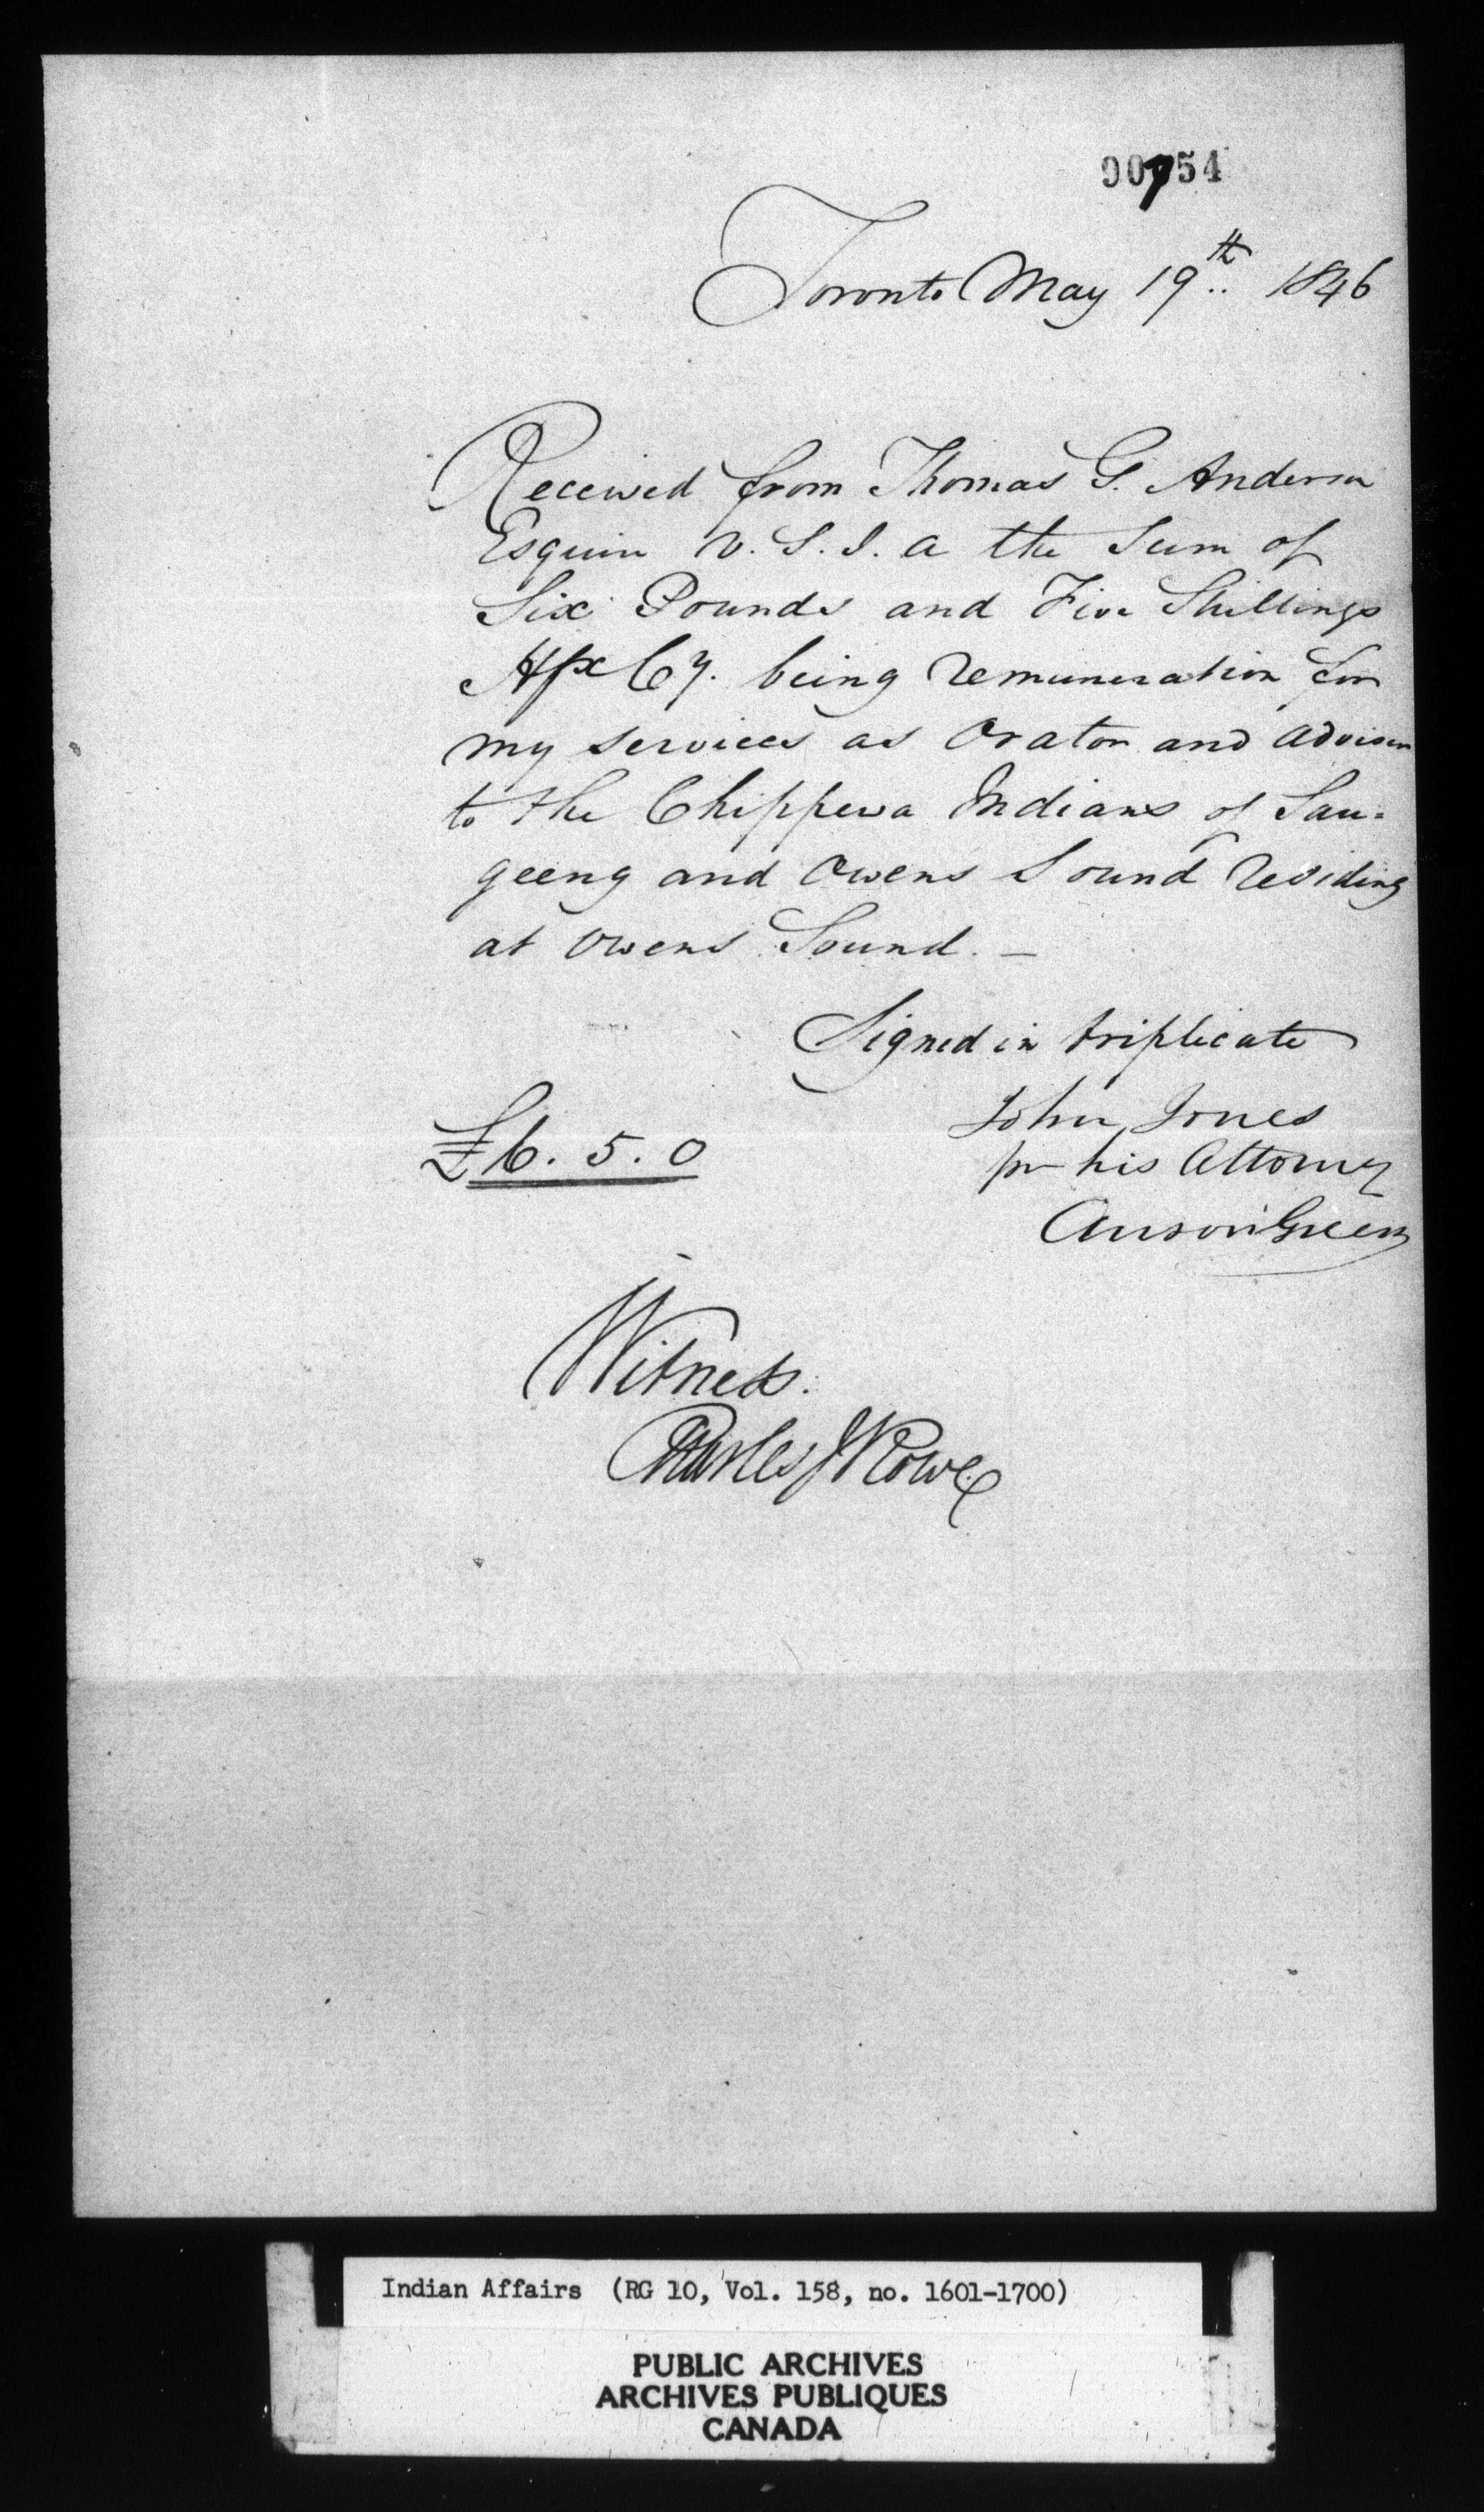 90754
Toronto May 19th 1846
Received from Thomas G. Anderson
Esquire V. S. I. A the Sum of
Six Pounds and Five Shillings
Hfx Cy. being remuneration for
my services as Orator and adviser
to the Chippewa Indians of Sau=
geeng and Owens Sound residing
at Owens Sound. —
Signed in triplicate
John Jones
pr his Attorney
Anson Green
£6. 5. 0
Witness.
Charles J Rowe
Indian Affairs (RG 10, Vol. 158, no. 1601-1700)
PUBLIC ARCHIVES
ARCHIVES PUBLIQUES
CANADA